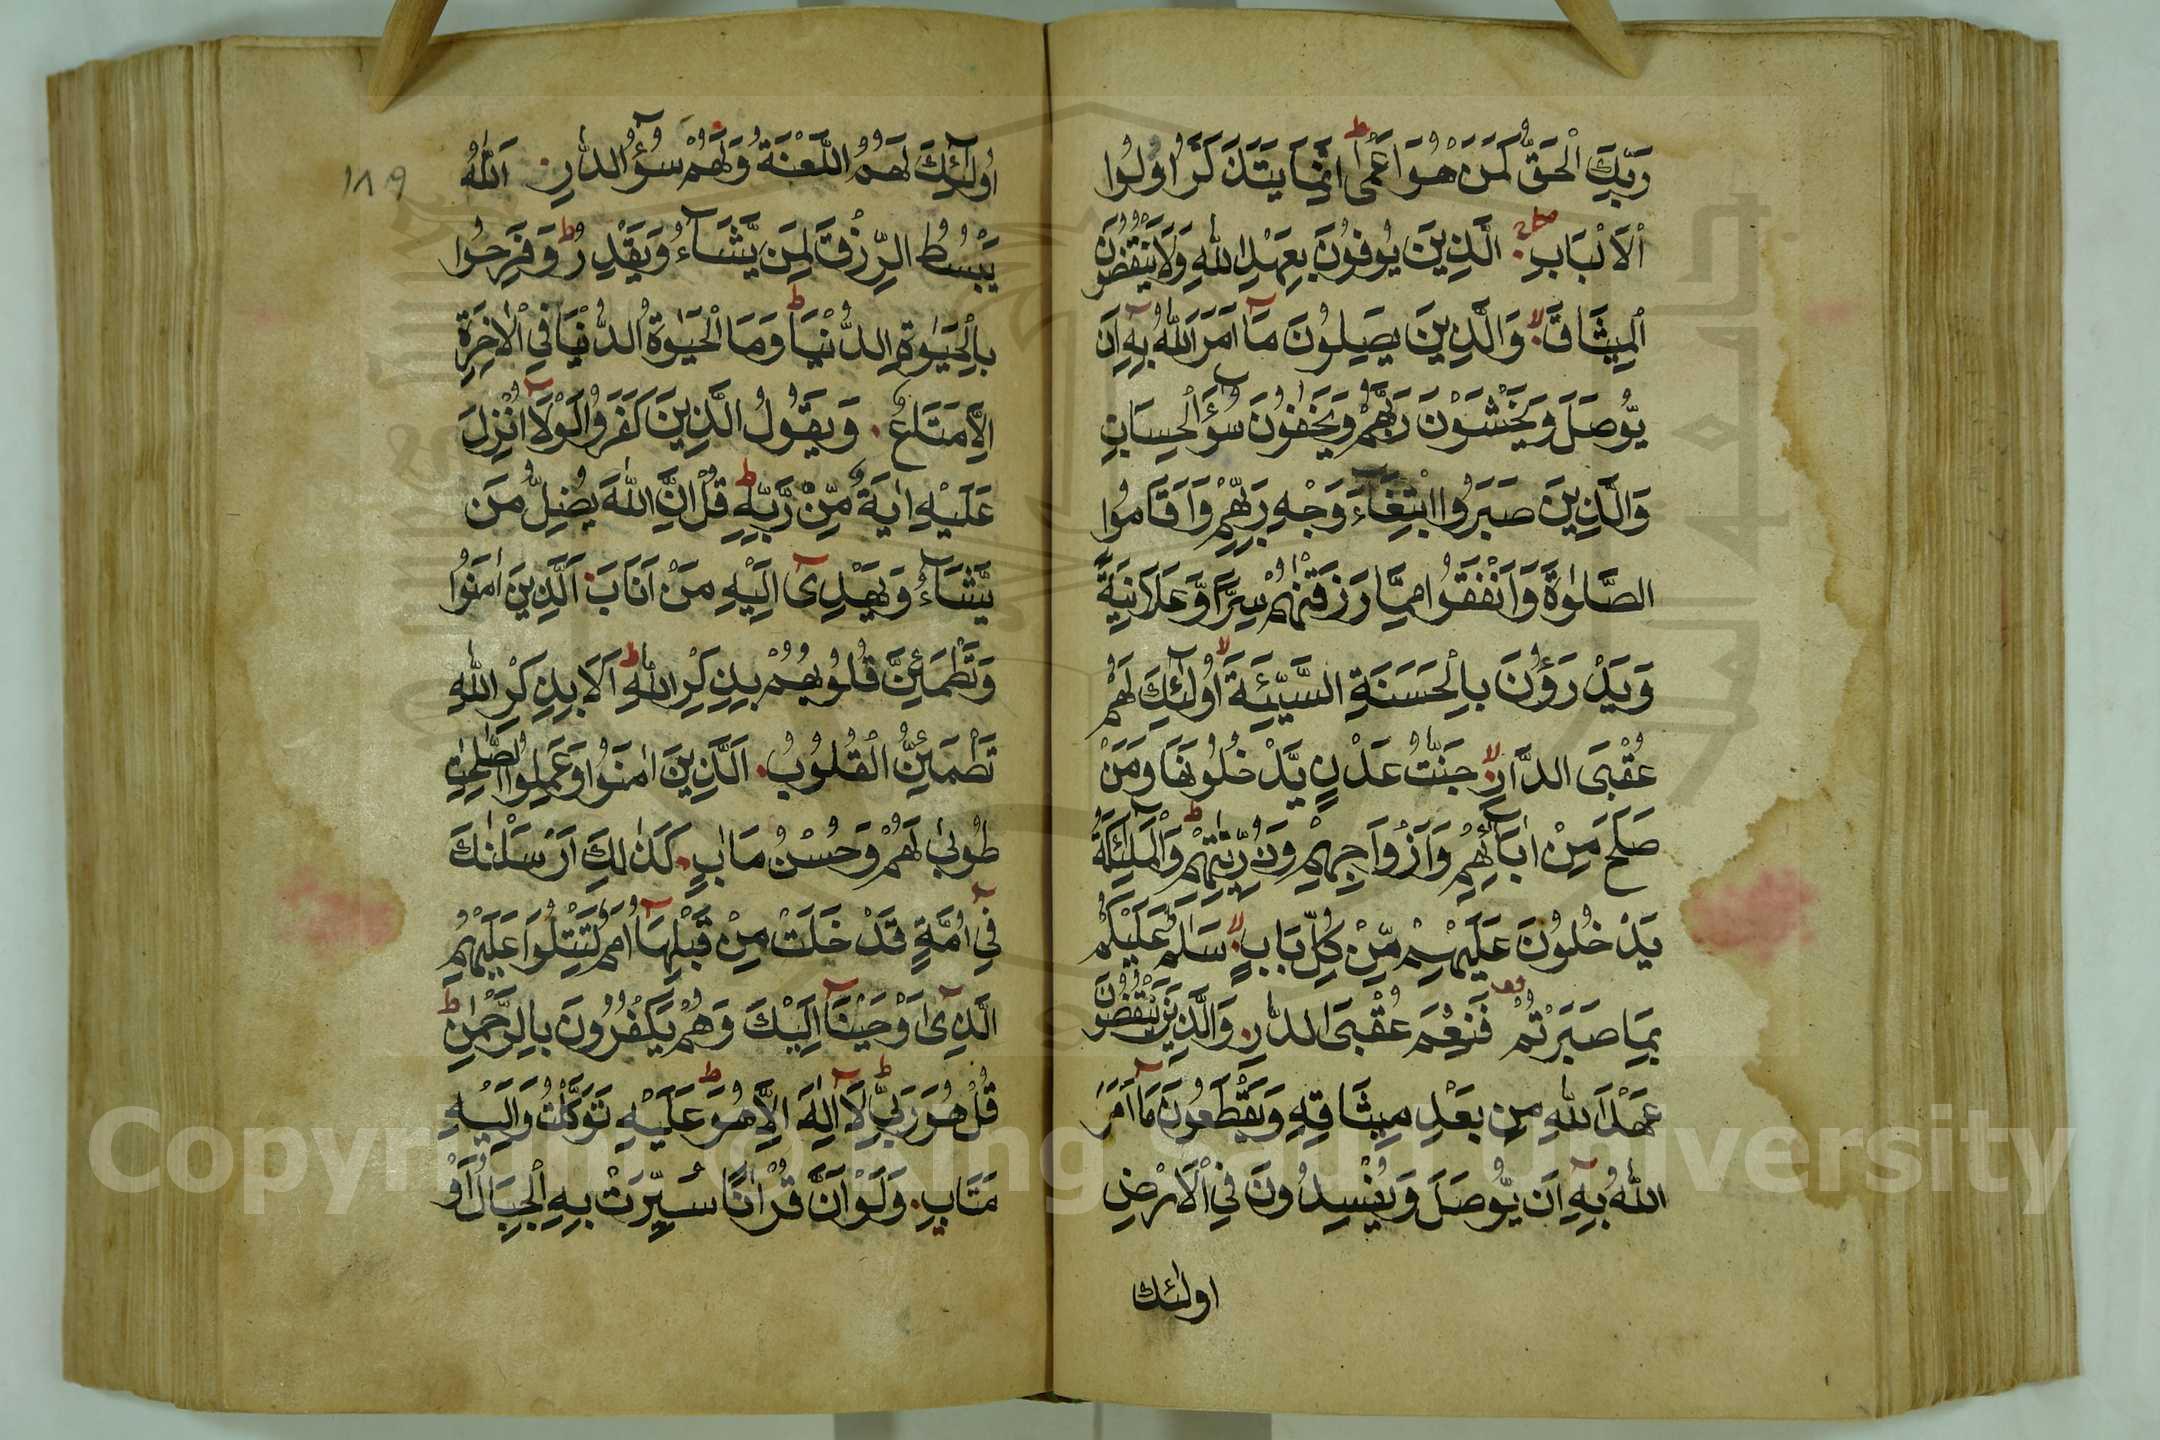 رَبِّكَ الْحَقُّ كَمَنْ هُوَ اَعْمٰى اِنَّمَا يَتَذَكَّرُ اُولُوا
الْاَلْبَابِ الَّذِينَ يُوفُونَ بِعَهْدِ اللّٰهِ وَلَا يَنْقُضُونَ
الْمِيثَاقَ وَالَّذِينَ يَصِلُونَ مَآ اَمَرَ اللّٰهُ بِهٖٓ اَنْ
يُّوصَلَ وَيَخْشَوْنَ رَبَّهُمْ وَيَخَافُونَ سُوٓءَ الْحِسَابِ
وَالَّذِينَ صَبَرُوا ابْتِغَآءَ وَجْهِ رَبِّهِمْ وَاَقَامُوا
الصَّلٰوةَ وَاَنْفَقُوا مِمَّا رَزَقْنٰهُمْ سِرًّا وَّعَلَانِيَةً
وَيَدْرَؤُنَ بِالْحَسَنَةِ السَّيِّئَةَ اُولٰٓئِكَ لَهُمْ
عُقْبَى الدَّارِ جَنّٰتُ عَدْنٍ يَّدْخُلُونَهَا وَمَنْ
صَلَحَ مِنْ اٰبَآئِهِمْ وَاَزْوَاجِهِمْ وَذُرِّيّٰتِهِمْ وَالْمَلٰٓئِكَةُ
يَدْخُلُونَ عَلَيْهِمْ مِّنْ كُلِّ بَابٍ سَلٰمٌ عَلَيْكُمْ
بِمَا صَبَرْتُمْ فَنِعْمَ عُقْبَى الدَّارِ وَالَّذِينَ يَنْقُضُونَ
عَهْدَ اللّٰهِ مِنْ بَعْدِ مِيثَاقِهٖ وَيَقْطَعُونَ مَآ اَمَرَ
اللّٰهُ بِهٖٓ اَنْ يُّوصَلَ وَيُفْسِدُونَ فِي الْاَرْضِ
اولئك
١٨٩
اُولٰٓئِكَ لَهُمُ اللَّعْنَةُ وَلَهُمْ سُوٓءُ الدَّارِ اَللّٰهُ
يَبْسُطُ الرِّزْقَ لِمَنْ يَّشَآءُ وَيَقْدِرُ وَفَرِحُوا
بِالْحَيٰوةِ الدُّنْيَا وَمَا الْحَيٰوةُ الدُّنْيَا فِي الْاٰخِرَةِ
اِلَّا مَتَاعٌ وَيَقُولُ الَّذِينَ كَفَرُوا لَوْلَآ اُنْزِلَ
عَلَيْهِ اٰيَةٌ مِّنْ رَّبِّهٖ قُلْ اِنَّ اللّٰهَ يُضِلُّ مَنْ
يَّشَآءُ وَيَهْدِىٓ اِلَيْهِ مَنْ اَنَابَ اَلَّذِينَ اٰمَنُوا
وَتَطْمَئِنُّ قُلُوبُهُمْ بِذِكْرِ اللّٰهِ اَلَا بِذِكْرِ اللّٰهِ
تَطْمَئِنُّ الْقُلُوبُ اَلَّذِينَ اٰمَنُوا وَعَمِلُوا الصّٰلِحٰتِ
طُوبٰى لَهُمْ وَحُسْنُ مَاٰبٍ كَذٰلِكَ اَرْسَلْنٰكَ
فِىٓ اُمَّةٍ قَدْ خَلَتْ مِنْ قَبْلِهَآ اُمَمٌ لِّتَتْلُوَا عَلَيْهِمُ
الَّذِىٓ اَوْحَيْنَآ اِلَيْكَ وَهُمْ يَكْفُرُونَ بِالرَّحْمٰنِ
قُلْ هُوَ رَبِّى لَآ اِلٰهَ اِلَّا هُوَ عَلَيْهِ تَوَكَّلْتُ وَاِلَيْهِ
مَتَابِ وَلَوْ اَنَّ قُرْاٰنًا سُيِّرَتْ بِهِ الْجِبَالُ اَوْ
Copyright © King Saud University